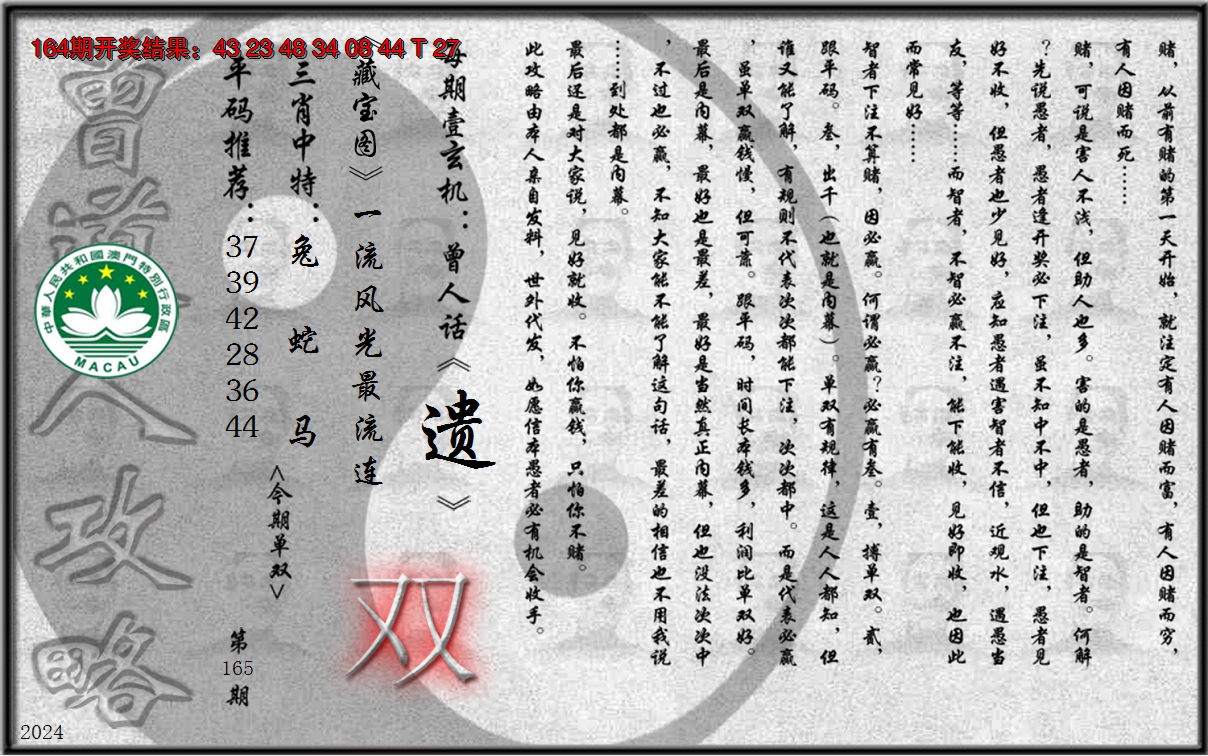 164期开奖结果：43 23 48 34 08 44 T 27
赌，从前有赌的第一天开始，就注定有人因赌而富，有人因赌而穷，
有人因赌而死……
赌，可说是害人不浅，但助人也多。害的是愚者，助的是智者。何解
？先说愚者，愚者逢开奖必下注，虽不知中不中，但也下注，愚者见
好不收，但愚者也少见好，应知愚者遇害智者不信，近观水，遇愚当
友，等等……而智者，不智必赢不注，能下能收，见好即收，也因此
而常见好……
智者下注不算赌，因必赢。何谓必赢？必赢有叁。壹，搏单双。贰，
跟平码。叁，出千（也就是内幕）。单双有规律，这是人人都知，但
谁又能了解，有规则不代表次次都能下注，次次都中。而是代表必赢
，虽单双赢钱慢，但可靠。跟平码，时间长本钱多，利润比单双好。
最后是内幕，最好也是最差，最好是当然真正内幕，但也没法次次中
，不过也必赢，不知大家能不能了解这句话，最差的相信也不用我说
……到处都是内幕。
最后还是对大家说，见好就收。不怕你赢钱，只怕你不赌。
此攻略由本人亲自发料，世外代发，如愿信本愚者必有机会收手。
每期壹玄机：曾人话《遗》
《藏宝图》一流风光最流连
双
三肖中特：兔 蛇 马
<今期单双>
平码推荐：37 39 42 28 36 44
第165期
曾道人攻略
中華人民共和國澳門特別行政區
MACAU
2024